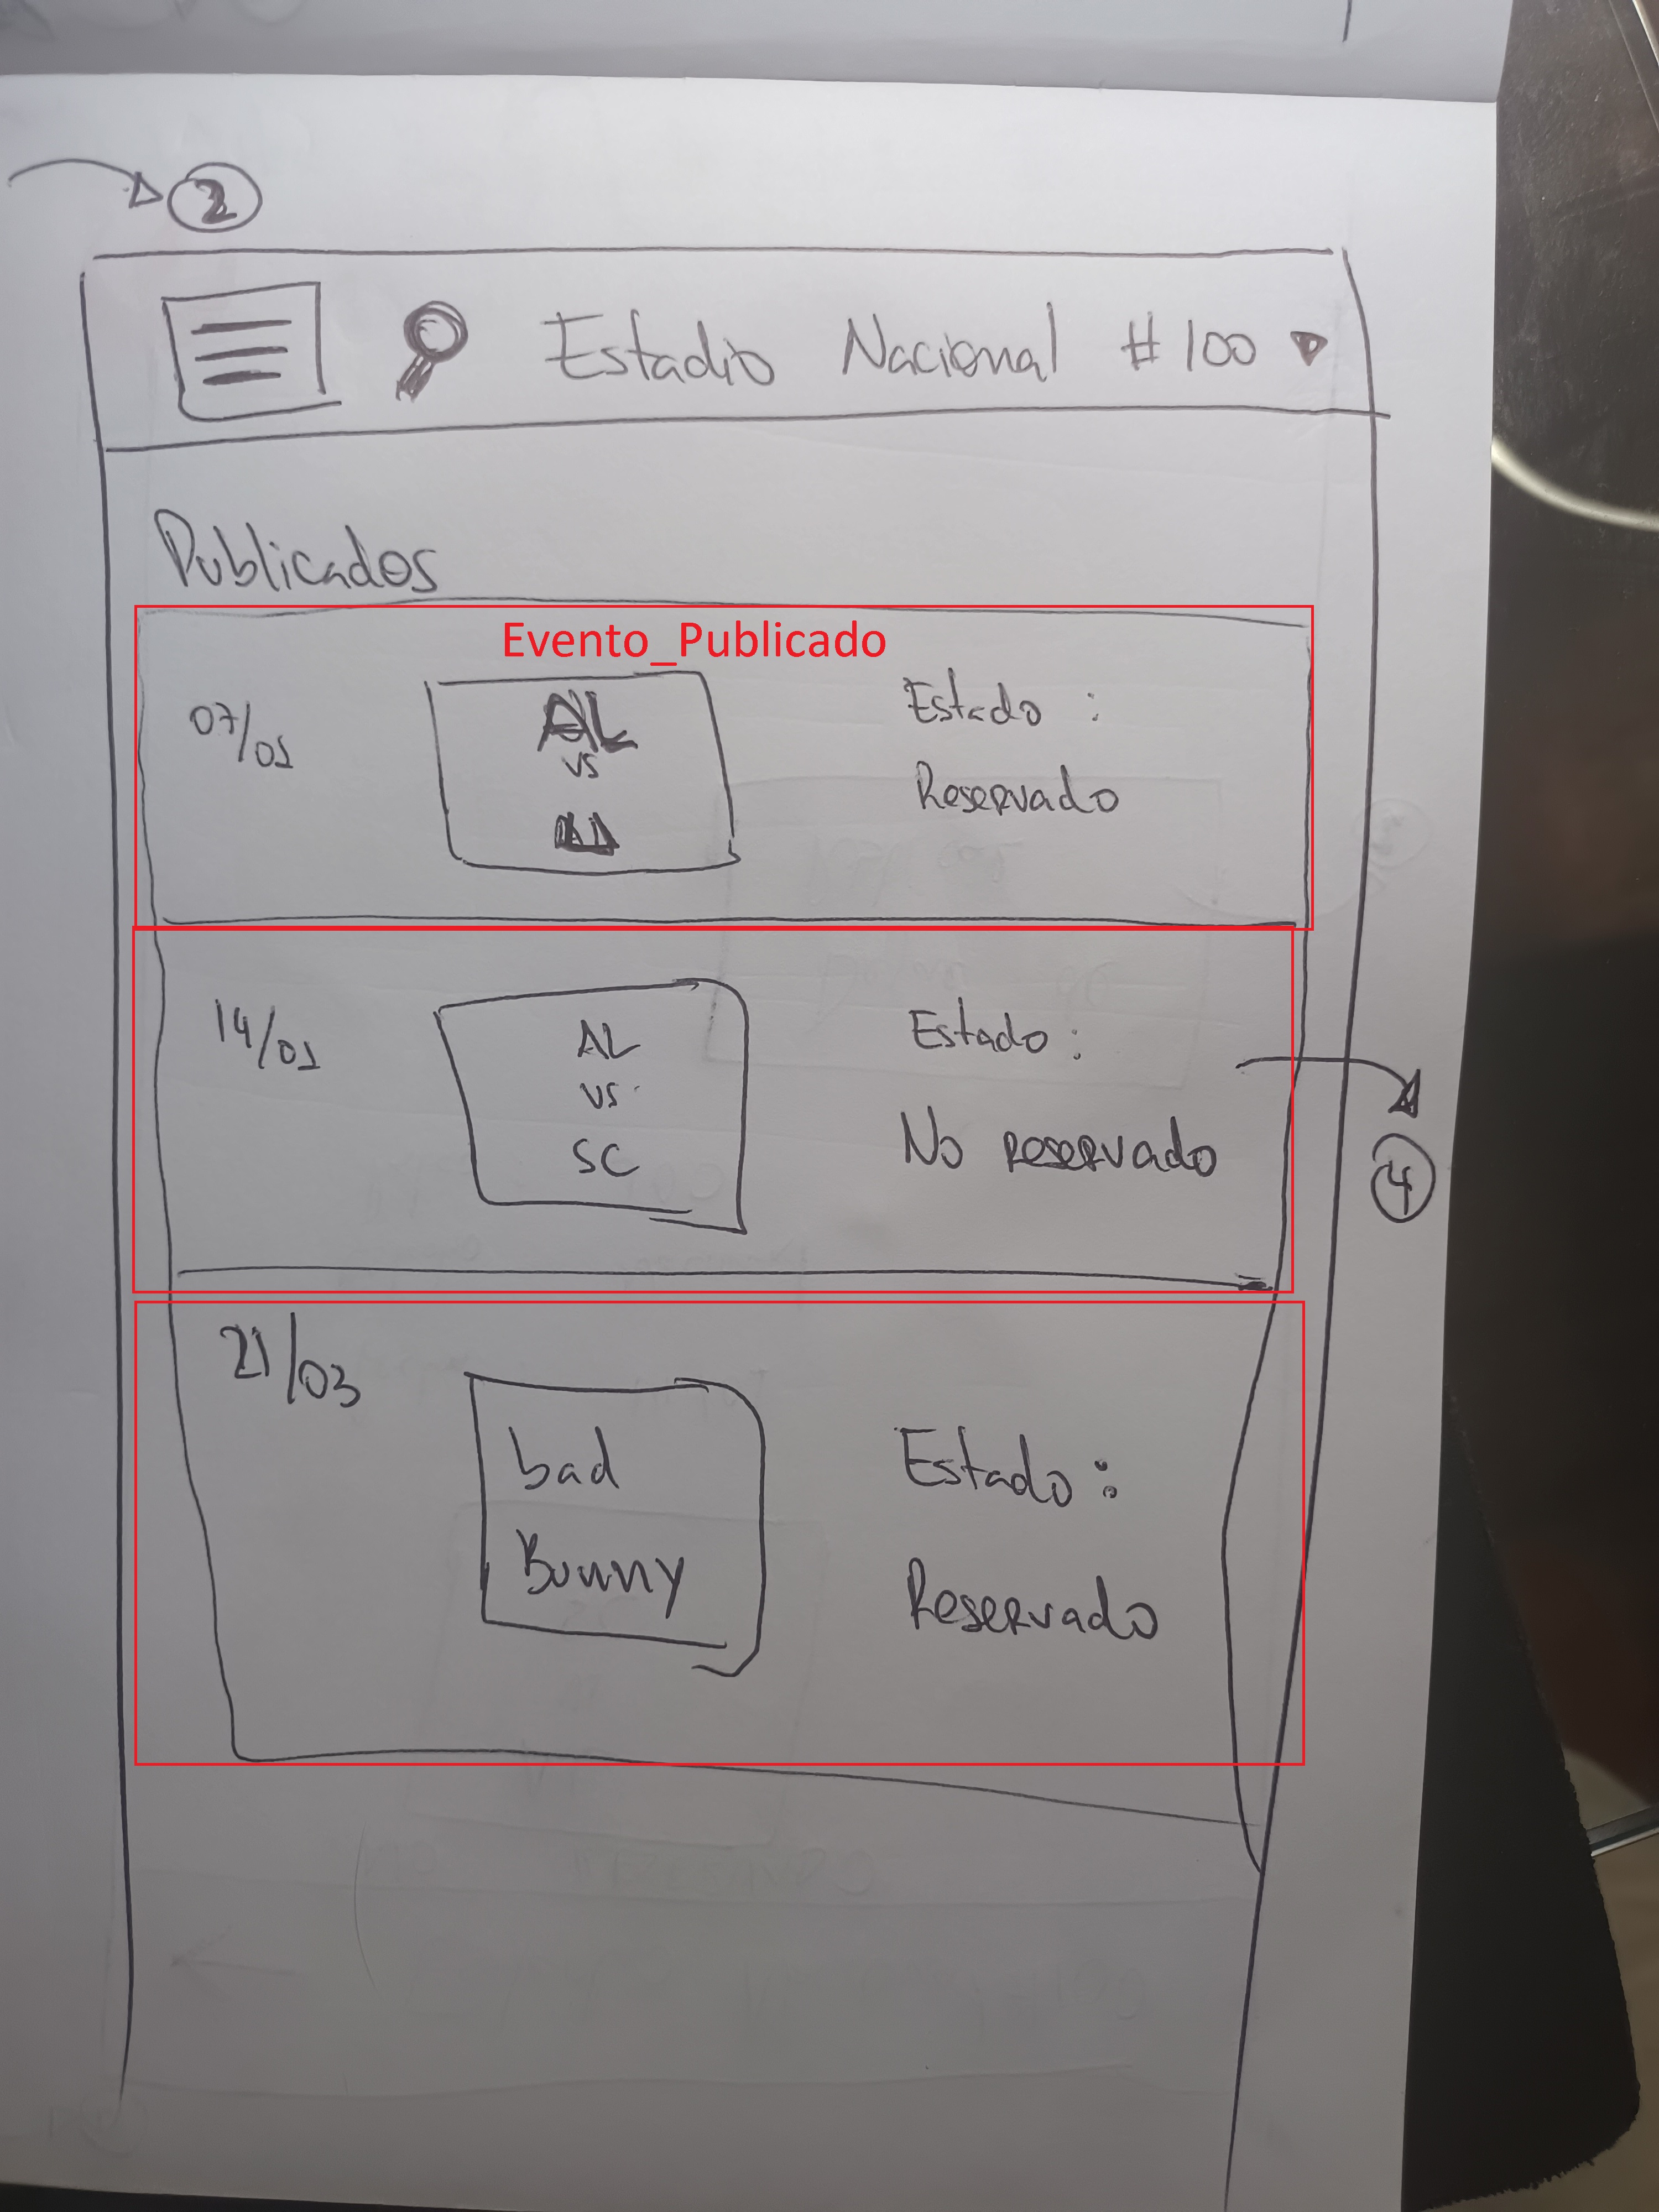 2
Estadio Nacional # 100
Publicados
Evento_Publicado
07/01
AL
vs
Estado :
Reservado
14/01
AL
vs
SC
Estado :
No reservado
4
21/03
bad
Bunny
Estado :
Reservado